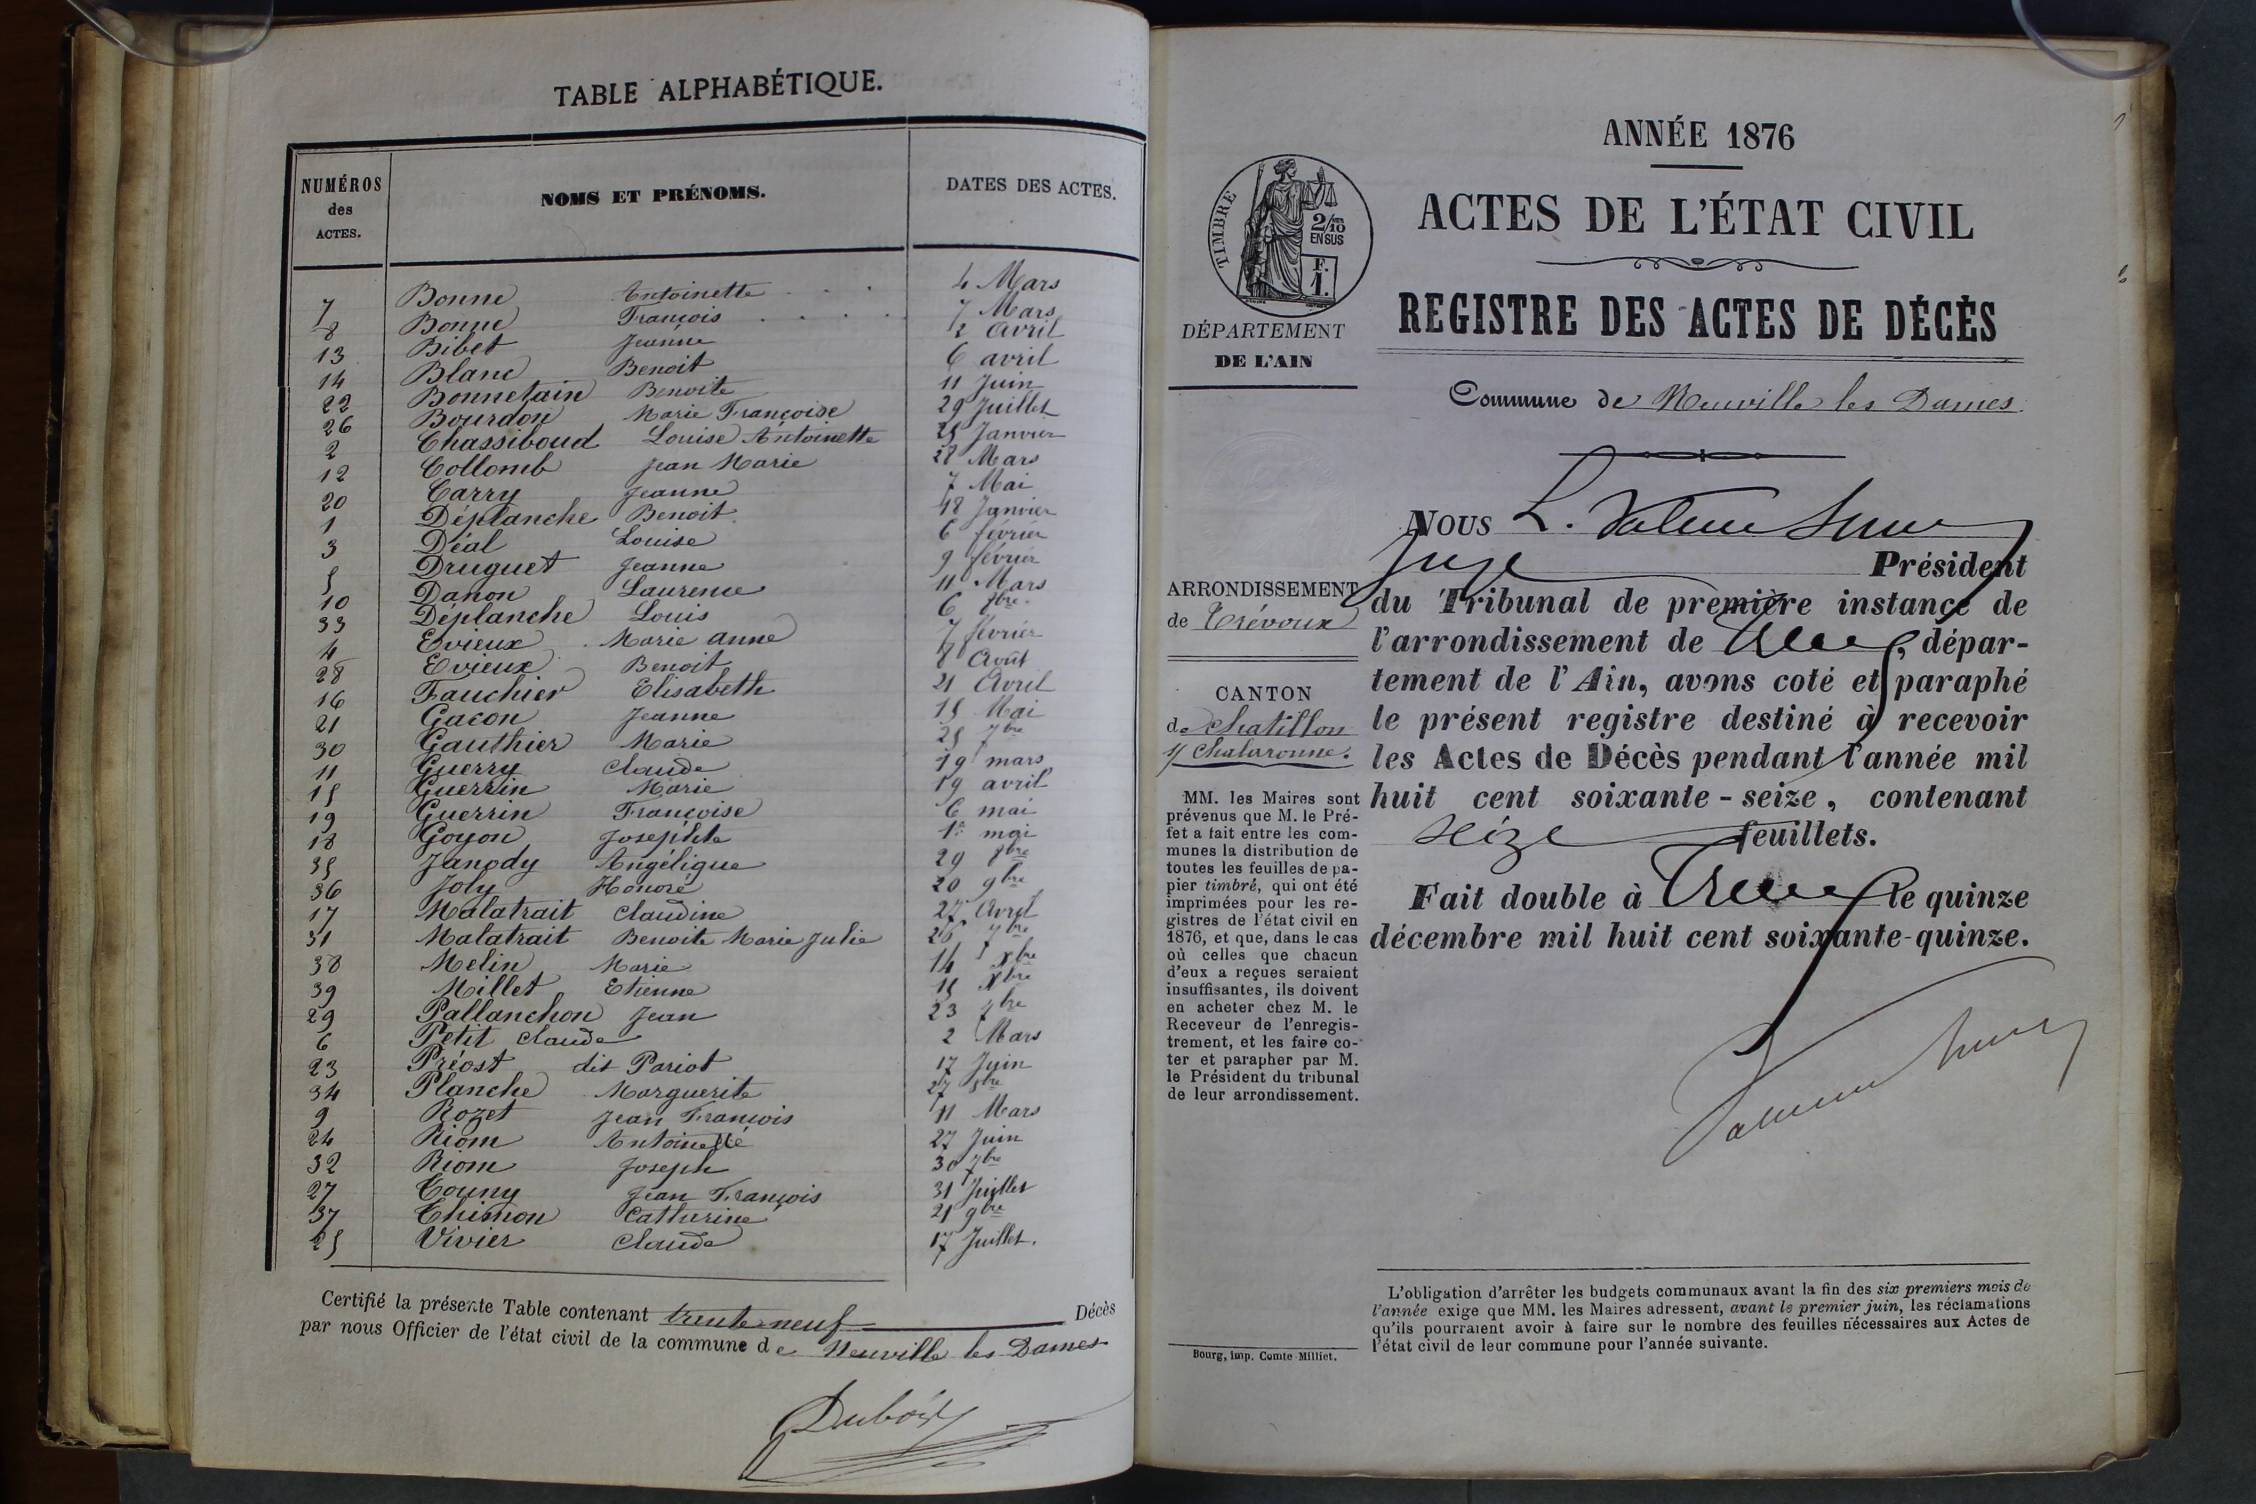 TABLE ALPHABÉTIQUE.
NUMÉROS des ACTES. NOMS ET PRÉNOMS. DATES DES ACTES.
7 Bonne Antoinette 4 Mars
8 Bonne François 7 Mars
13 Bibet Jeanne 2 Avril
14 Blanc Benoit 6 avril
22 Bonnetain Benoite 11 Juin
26 Bourdon Marie Françoise 29 Juillet
2 Chassiboud Louise Antoinette 25 Janvier
12 Collomb Jean Marie 28 Mars
20 Carry Jeanne 7 Mai
1 Déplanche Benoit 18 Janvier
3 Déal Louise 6 février
5 Druguet Jeanne 9 février
10 Danon Laurence 11 Mars
33 Déplanche Louis 6 8bre
4 Evieux Marie anne 7 février
28 Evieux Benoit 8 Août
16 Fauchier Elisabeth 21 Avril
21 Gacon Jeanne 15 Mai
30 Gauthier Marie 25 7bre
11 Guerry Claude 19 mars
15 Guerrin Marie 19 avril
19 Guerrin Françoise 6 mai
18 Goyon Josephte 1er mai
35 Janody Angélique 29 8bre
36 Joly Honoré 20 9bre
17 Malatrait Claudine 27 Avril
31 Malatrait Benoite Marie Julie 26 7bre
38 Melin Marie 14 Xbre
39 Millet Etienne 15 Xbre
29 Pallanchon Jean 23 7bre
6 Petit Claude 2 Mars
23 Préost dit Pariot 17 Juin
34 Planche Marguerite 27 8bre
9 Rozet Jean François 11 Mars
24 Riom Antoinette 27 Juin
32 Riom Joseph 30 7bre
27 Touny Jean François 31 Juillet
37 Thimon Catherine 21 9bre
25 Vivier Claude 17 Juillet.
Certifié la présente Table contenant trente-neuf Décès
par nous Officier de l'état civil de la commune de Neuville les Dames
Dubois
ANNÉE 1876
ACTES DE L'ÉTAT CIVIL
REGISTRE DES ACTES DE DÉCÈS
TIMBRE
2/10 EN SUS
F. 1.
DÉPARTEMENT
DE L'AIN
Commune de Neuville les Dames.
ARRONDISSEMENT
de Trévoux
CANTON
de Chatillon
s/ Chalaronne.
MM. les Maires sont
prévenus que M. le Pré-
fet a fait entre les com-
munes la distribution de
toutes les feuilles de pa-
pier timbré, qui ont été
imprimées pour les re-
gistres de l'état civil en
1876, et que, dans le cas
où celles que chacun
d'eux a reçues seraient
insuffisantes, ils doivent
en acheter chez M. le
Receveur de l'enregis-
trement, et les faire co-
ter et parapher par M.
le Président du tribunal
de leur arrondissement.
Bourg, imp. Comte-Milliet.
NOUS L.
Juge Président
du Tribunal de première instance de
l'arrondissement de Trévoux, dépar-
tement de l'Ain, avons coté et paraphé
le présent registre destiné à recevoir
les Actes de Décès pendant l'année mil
huit cent soixante-seize, contenant
seize feuillets.
Fait double à Trévoux le quinze
décembre mil huit cent soixante-quinze.
L'obligation d'arrêter les budgets communaux avant la fin des six premiers mois de
l'année exige que MM. les Maires adressent, avant le premier juin, les réclamations
qu'ils pourraient avoir à faire sur le nombre des feuilles nécessaires aux Actes de
l'état civil de leur commune pour l'année suivante.